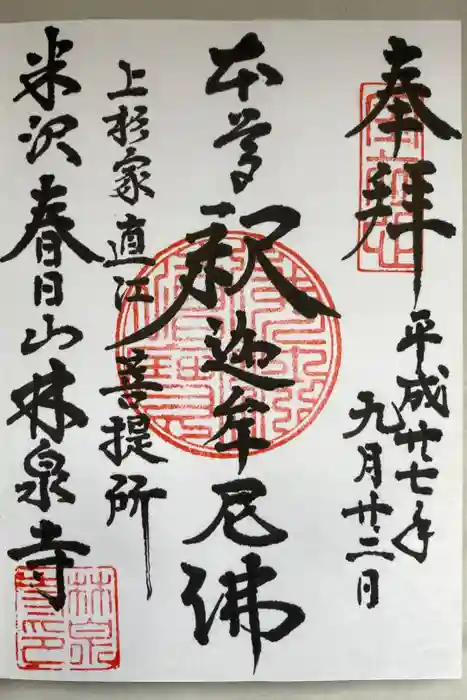 奉拝
平成廿七年
九月廿二日
本尊 釈迦牟尼佛
上杉家 直江 菩提所
米沢 春日山 林泉寺